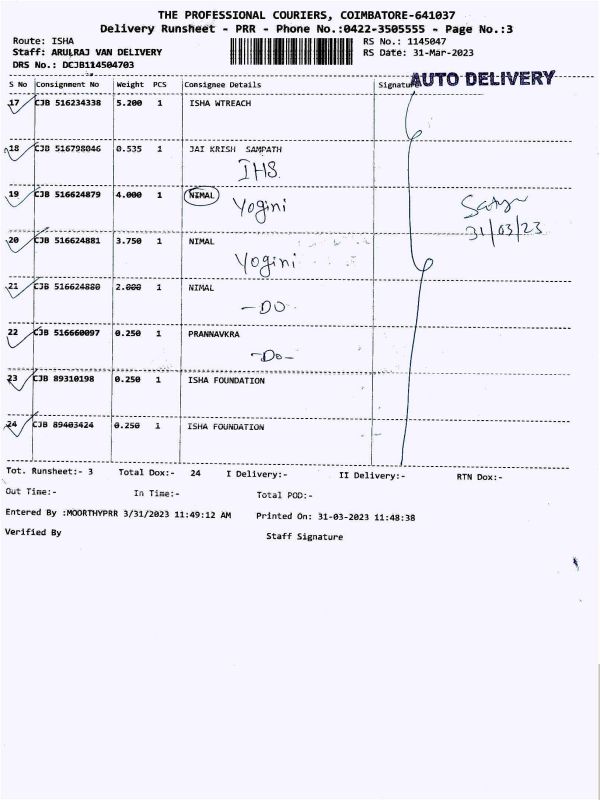 THE PROFESSIONAL COURIERS, COIMBATORE-641037
Delivery Runsheet - PRR - Phone No.:0422-3505555 - Page No.:3
Route: ISHA RS No.: 1145047
Staff: ARULRAJ VAN DELIVERY RS Date: 31-Mar-2023
DRS No.: DCJB114504703
AUTO DELIVERY
S No Consignment No Weight PCS Consignee Details Signature
17 CJB 516234338 5.200 1 ISHA WTREACH
18 CJB 516798046 0.535 1 JAI KRISH SAMPATH
IHS
19 CJB 516624879 4.000 1 NIMAL
Yogini
31/03/23
20 CJB 516624881 3.750 1 NIMAL
Yogini
21 CJB 516624880 2.000 1 NIMAL
-DO-
22 CJB 516660097 0.250 1 PRANNAVKRA
-Do-
23 CJB 89310198 0.250 1 ISHA FOUNDATION
24 CJB 89403424 0.250 1 ISHA FOUNDATION
Tot. Runsheet:- 3 Total Dox:- 24 I Delivery:- II Delivery:- RTN Dox:-
Out Time:- In Time:- Total POD:-
Entered By :MOORTHYPRR 3/31/2023 11:49:12 AM Printed On: 31-03-2023 11:48:38
Verified By Staff Signature